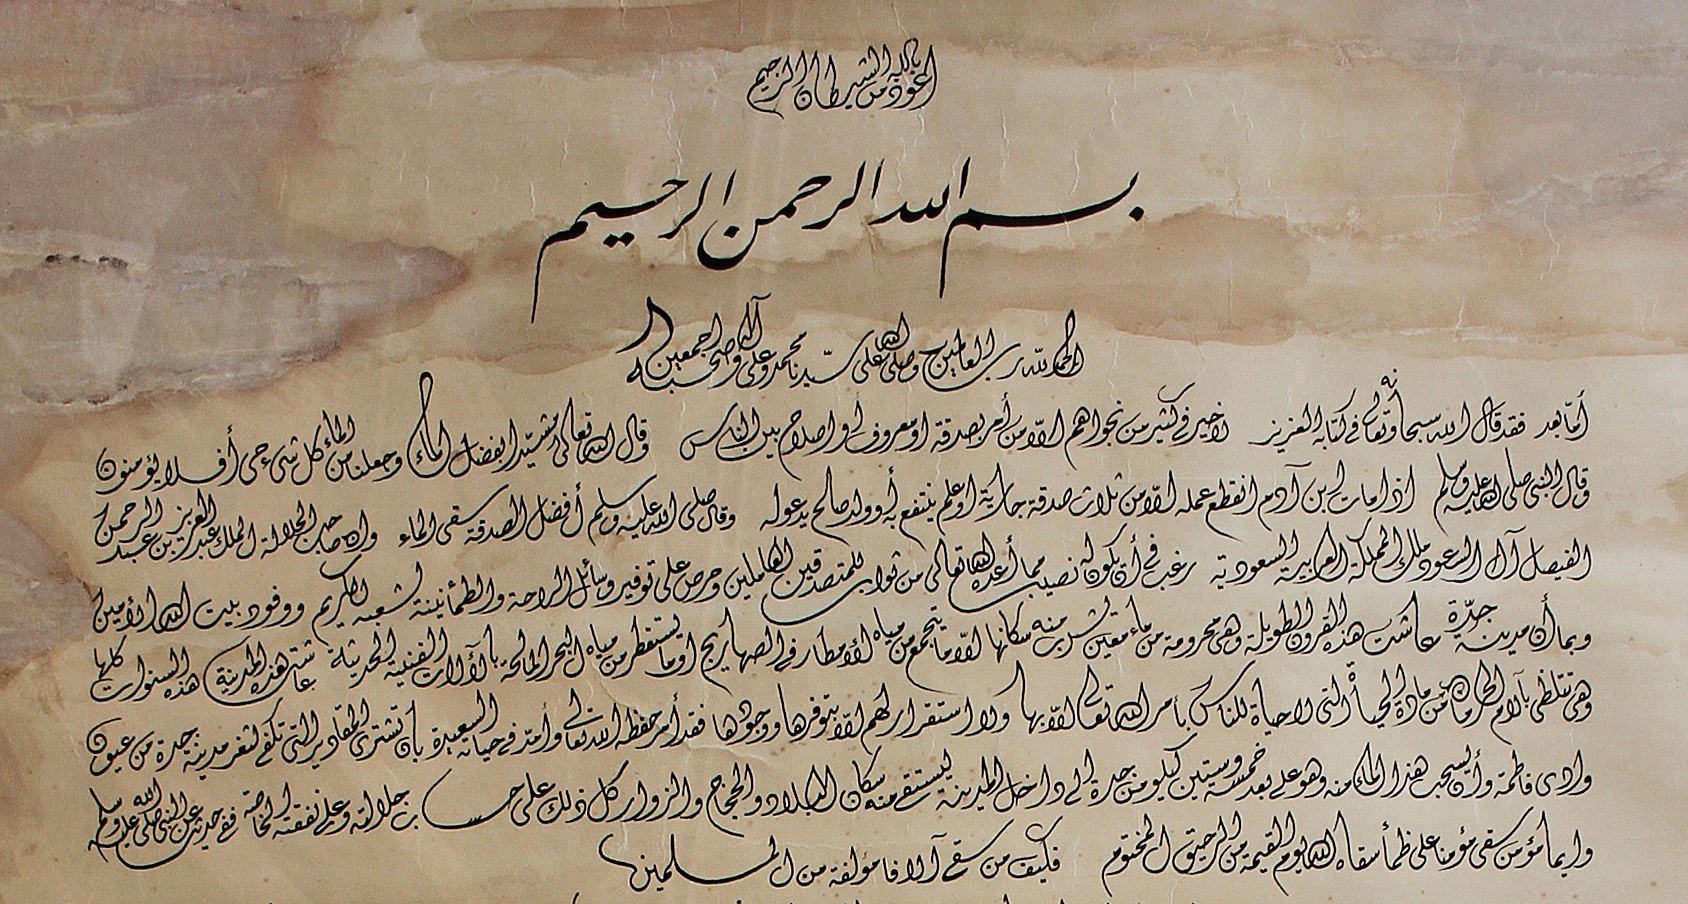 اعوذ بالله من الشيطان الرجيم
بسم الله الرحمن الرحيم
الحمد لله رب العالمين وصلى الله على سيدنا محمد وعلى آله وصحبه اجمعين
أما بعد فقد قال الله سبحانه وتعالى في كتابه العزيز لا خير في كثير من نجواهم الا من أمر بصدقة او معروف أو اصلاح بين الناس وقال الله تعالى مشيدا بفضل الماء وجعلنا من الماء كل شىء حى أفلا يؤمنون
وقال النبى صلى الله عليه وسلم اذا مات ابن آدم انقطع عمله الا من ثلاث صدقة جارية او علم ينتفع به أو ولد صالح يدعو له وقال صلى الله عليه وسلم أفضل الصدقة سقى الماء وان صاحب الجلالة الملك عبد العزيز بن عبد الرحمن
الفيصل آل السعود ملك المملكة العربية السعودية رغب في أن يكون له نصيب مما أعده الله تعالى من ثواب للمتصدقين العاملين وحرص على توفير وسائل الراحة والطمأنينة لشعبه الكريم ووفود بيت الله الأمين
وبما أن مدينة جدة عاشت هذه القرون الطويلة وهى محرومة من ماء معين يشرب منه سكانها الا ما يتجمع من مياه الأمطار في الصهاريج او ما يستقطر من مياه البحر المالحة بالآلات الفنية الحديثة عاشت هذه المدينة هذه السنوات كلها
وهى تتلظى بآلام الحرمان من مادة الحياة التى لا حياة للناس بأمر الله تعالى الا بها ولا استقرار لهم الا بتوفرها ووجودها فقد أمر حفظه الله تعالى وأمد في حياته السعيدة بأن تشترى المقادير التى تكفى لثغر مدينة جدة من عيون
وادى فاطمة وأن يسحب هذا الماء منه وهو على بعد خمسة وستين كيلو من جدة الى داخل المدينة ليستقى منه سكان البلاد والحجاج والزوار كل ذلك على حساب جلالته وعلى نفقته الخاصة ففى حديث عن النبى صلى الله عليه وسلم
وايما مؤمن سقى مؤمنا على ظمأ سقاه الله يوم القيمة من الرحيق المختوم فكيف من سقى آلافا مؤلفة من المسلمين